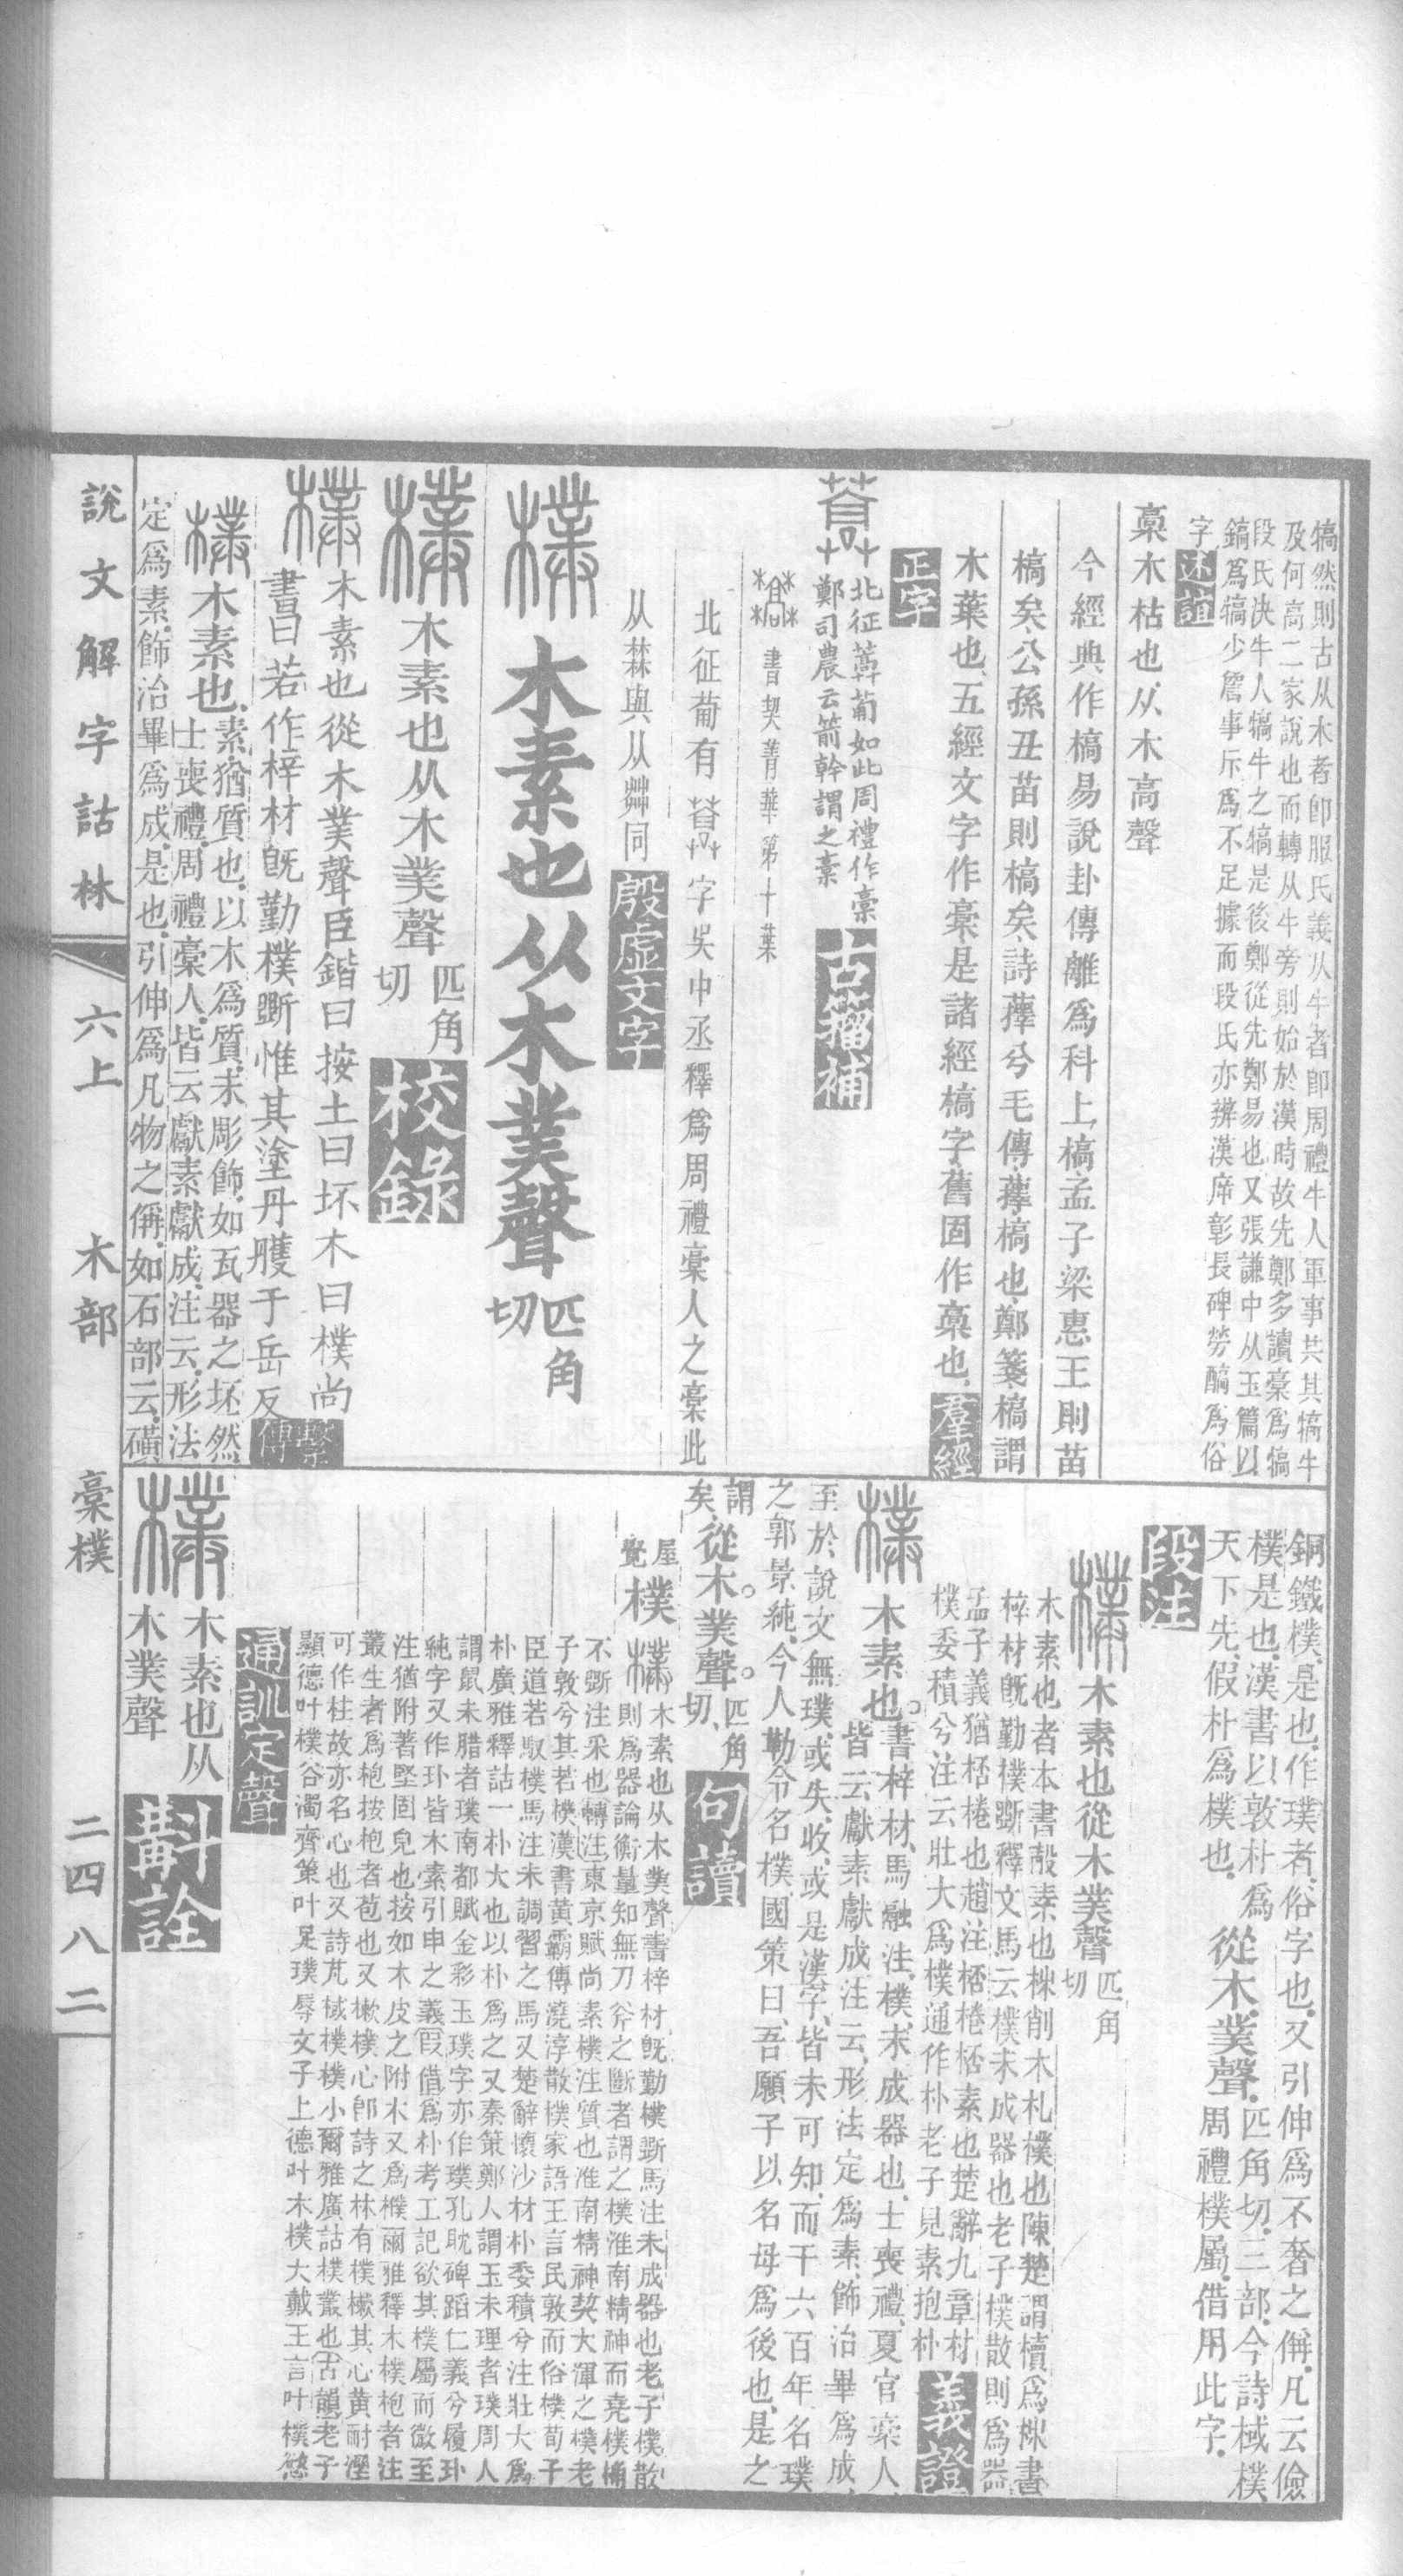 犒然則古从木者卽服氏義从牛者卽周禮牛人軍事共其犒牛
及何高二家說也而轉从牛旁則始於漢時故先鄭多讀稾爲犒
段氏決牛人犒牛之犒是後鄭從先鄭易也又張謙中从玉篇以
鎬爲犒少詹事斥爲不足據而段氏亦辨漢斥彰長碑勞醕爲俗
字述誼
槀木枯也从木高聲
今經典作槁易說卦傳離爲科上槁孟子梁惠王則苗
槁矣公孫丑苗則槁矣詩蘀兮毛傳蘀槁也鄭箋槁謂
木葉也五經文字作槀是諸經槁字舊固作槀也羣經
正字
北征蒿葡如此周禮作槀
鄭司農云箭幹謂之槀古籀補
書契菁華第十葉
北征葡有字吳中丞釋爲周禮槀人之槀此
从林與从艸同殷虛文字
樸木素也从木菐聲匹角切
樸木素也从木菐聲匹角切校錄
樸木素也從木菐聲臣鍇曰按土曰坏木曰樸尚
書曰若作梓材旣勤樸斲惟其塗丹雘于岳反繫傳
樸木素也素猶質也以木爲質未彫飾如瓦器之坯然
士喪禮周禮槀人皆云獻素獻成注云形法
定爲素飾治畢爲成是也引伸爲凡物之偁如石部云磺
銅鐵樸是也作璞者俗字也又引伸爲不奢之偁凡云儉
樸是也漢書以敦朴爲從木菐聲匹角切三部今詩棫樸
天下先假朴爲樸也周禮樸屬借用此字
段注
樸木素也從木菐聲匹角切
木素也者本書㱿素也柹削木札樸也陳楚謂櫝爲柹書
梓材旣勤樸斲釋文馬云樸未成器也老子樸散則爲器
孟子義猶桮棬也趙注桮棬桮素也楚辭九章材
樸委積兮注云壯大爲樸通作朴老子見素抱朴義證
樸木素也書梓材馬融注樸未成器也士喪禮夏官槀人
皆云獻素獻成注云形法定爲素飾治畢爲成
至於說文無璞或失收或是漢字皆未可知而千六百年名璞
之郭景純今人勒令名樸國策曰吾願子以名母爲後也是之
謂矣從木菐聲匹角切句讀
屋覺樸木素也从木菐聲書梓材旣勤樸斲馬注未成器也老子樸散
則爲器論衡量知無刀斧之斷者謂之樸淮南精神而堯樸桷
不斲注采也轉注東京賦尚素樸注質也淮南精神契大渾之樸老
子敦兮其若樸漢書黃霸傳澆淳散樸家語王言民敦而俗樸荀子
臣道若馭樸馬注未調習之馬又楚辭懷沙材朴委積兮注壯大爲
朴廣雅釋詁一朴大也以朴爲之又秦策鄭人謂玉未理者璞周人
謂鼠未腊者璞南都賦金彩玉璞字亦作璞孔耽碑蹈仁義兮履玣
純字又作玣皆木素引申之義假借爲朴考工記欲其樸屬而微至
注猶附著堅固皃也按如木皮之附木又爲樸爾雅釋木樸枹者注
叢生者爲枹按枹者苞也又樕樸心卽詩之林有樸樕其心黃耐溼
可作柱故亦名心也又詩芃棫樸樸小爾雅廣詁樸叢也古韻老子
顯德叶樸谷濁齊策叶足璞辱文子上德叶木樸大戴王言叶樸慤
通訓定聲
樸木素也从木菐聲斠詮
說文解字詁林 六上 木部 槀樸 二四八二